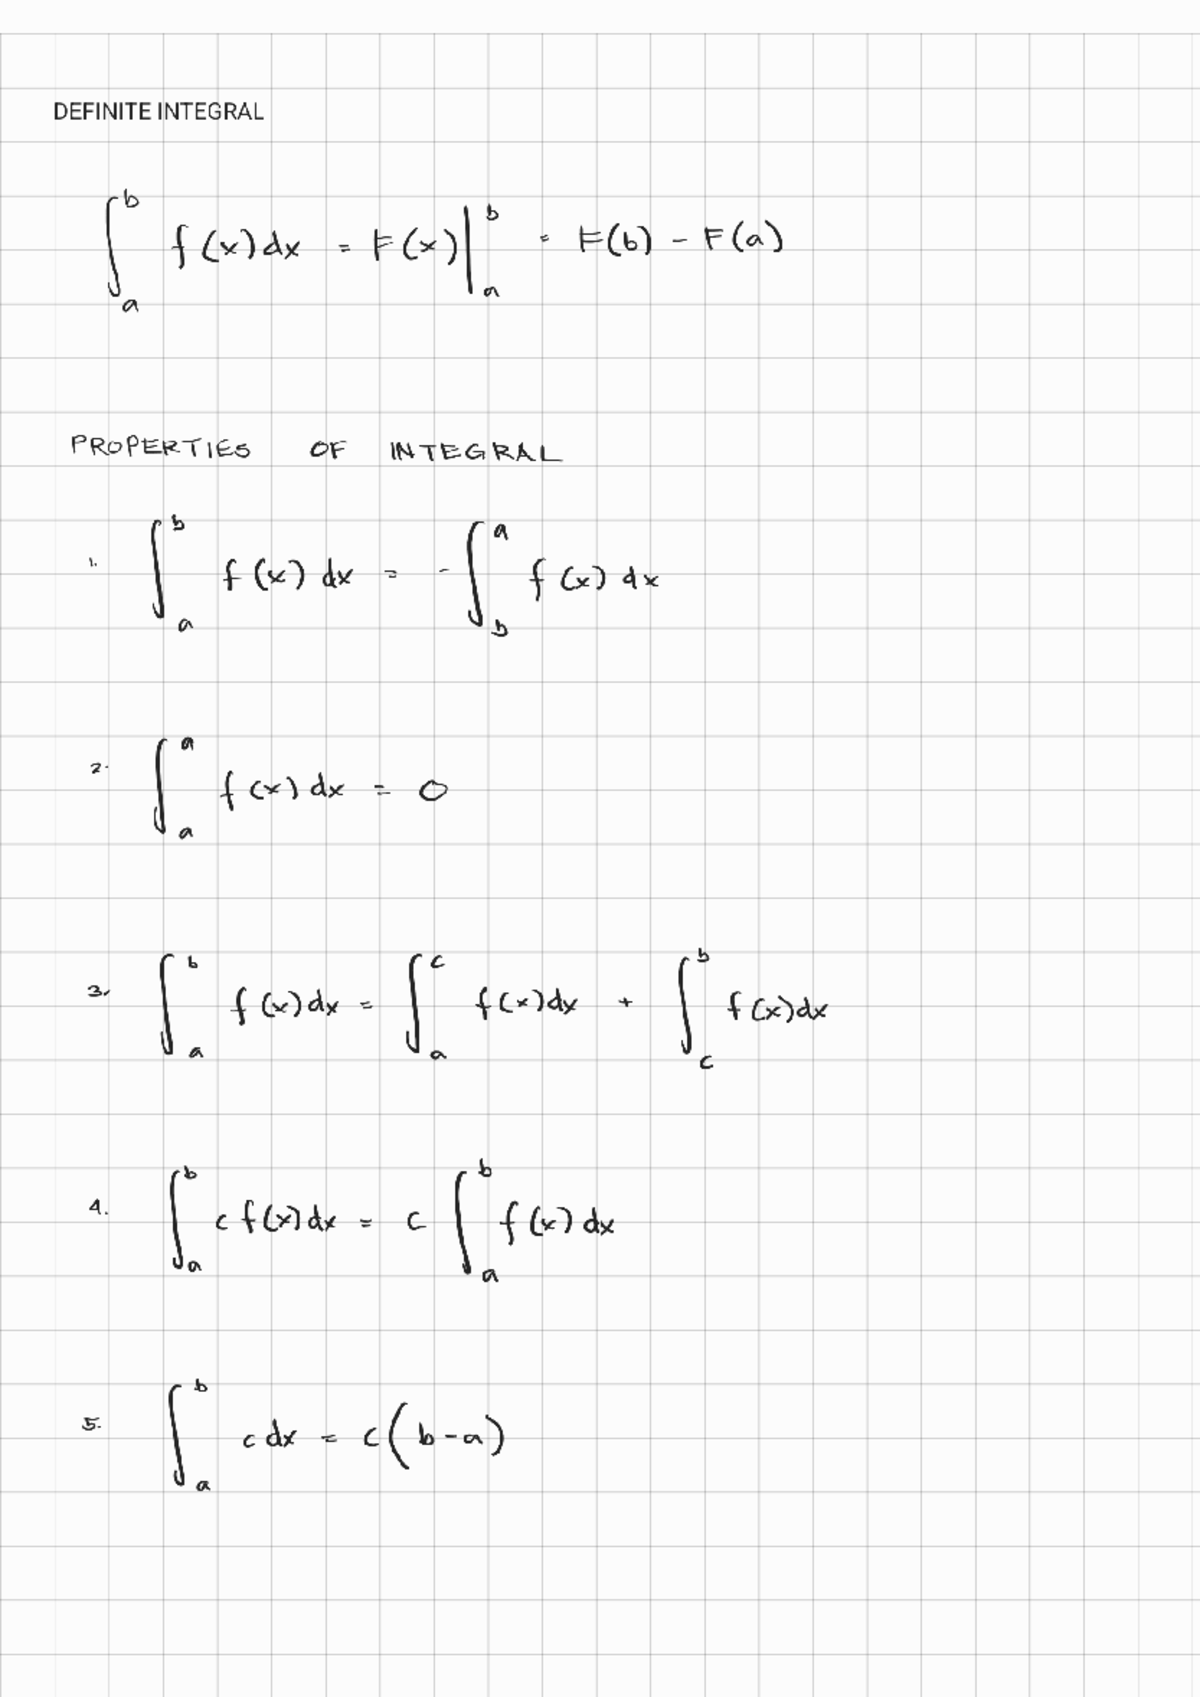 DEFINITE INTEGRAL
∫_a^b f(x)dx = F(x)|_a^b = F(b) - F(a)
PROPERTIES OF INTEGRAL
1. ∫_a^b f(x) dx = -∫_b^a f(x) dx
2. ∫_a^a f(x) dx = 0
3. ∫_a^b f(x)dx = ∫_a^c f(x)dx + ∫_c^b f(x)dx
4. ∫_a^b c f(x)dx = c ∫_a^b f(x) dx
5. ∫_a^b c dx = c(b-a)